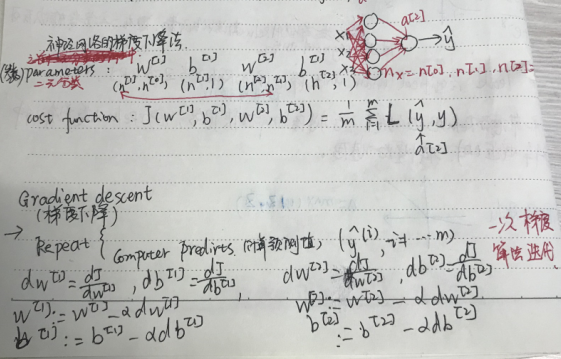 神经网络的梯度下降法
a[2]
x₁
x₂
x₃
ŷ
(参数) parameters : W[1] b[1] W[2] b[2] nx = n[0], n[1], n[2] =
(n[1], n[0]) (n[1], 1) (n[2], n[1]) (n[2], 1)
cost function : J(W[1], b[1], W[2], b[2]) = 1/m Σᵢ₌₁ᵐ L(ŷ, y)
a[2]
Gradient descent
(梯度下降)
→ Repeat { Computer predicts (ŷ(i), i=1 … m)
一次梯度
dW[1] = dJ/dW[1] , db[1] = dJ/db[1] , dW[2] = dJ/dW[2] , db[2] = dJ/db[2]
W[1] := W[1] - αdW[1] W[2] := W[2] - αdW[2]
b[1] := b[1] - αdb[1] b[2] := b[2] - αdb[2]